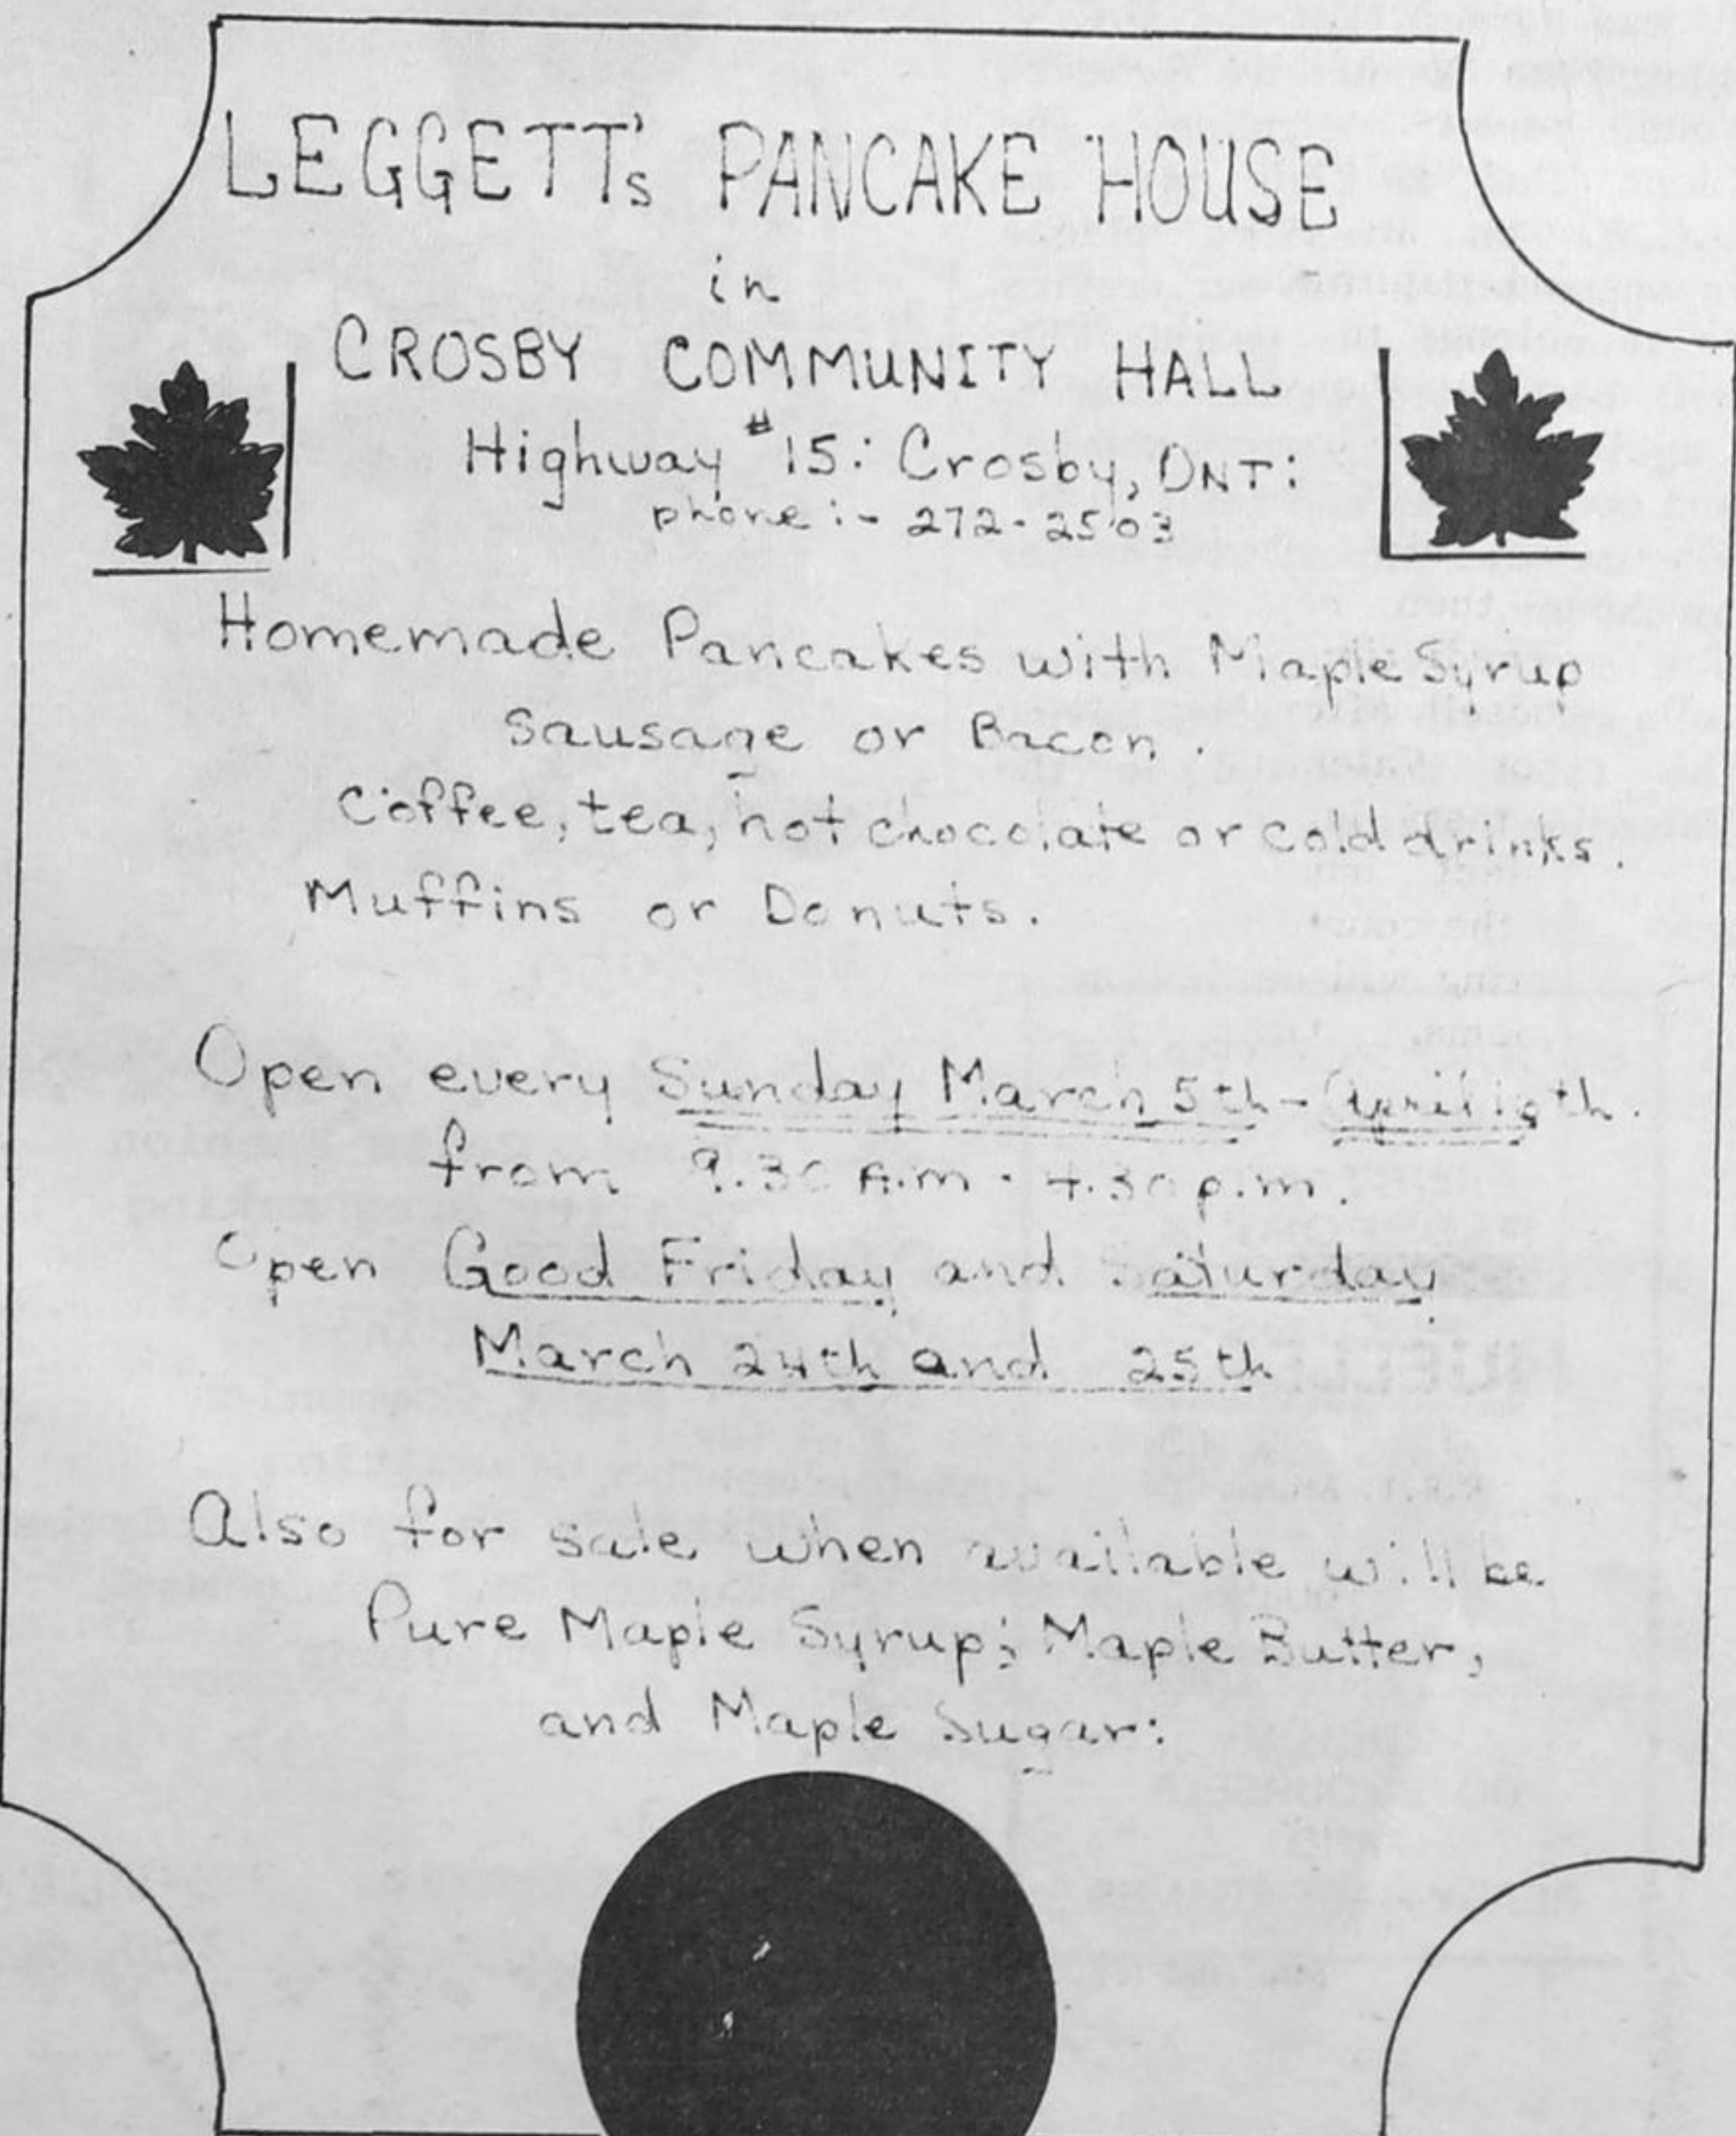 LEGGETT's PANCAKE HOUSE
in
CROSBY COMMUNITY HALL
Highway #15: Crosby, ONT:
phone:- 272-2503
Homemade Pancakes with Maple Syrup
Sausage or Bacon.
Coffee, tea, hot chocolate or cold drinks.
Muffins or Donuts.
Open every Sunday March 5th - April
from 9.30 A.m - 4.30 p.m.
Open Good Friday and Saturday
March 24th and 25th
Also for sale when available will be
Pure Maple Syrup; Maple Butter,
and Maple Sugar: